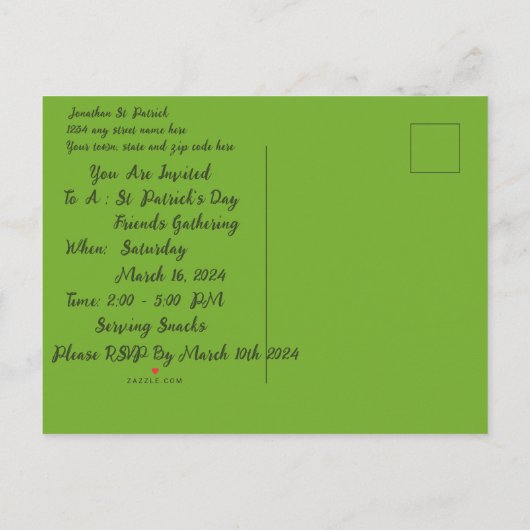 Jonathan St Patrick
1234 any street name here
Your town, state and zip code here
You Are Invited
To A : St Patrick's Day
Friends Gathering
When: Saturday
March 16, 2024
Time: 2:00 - 5:00 PM
Serving Snacks
Please RSVP By March 10th 2024
ZAZZLE.COM